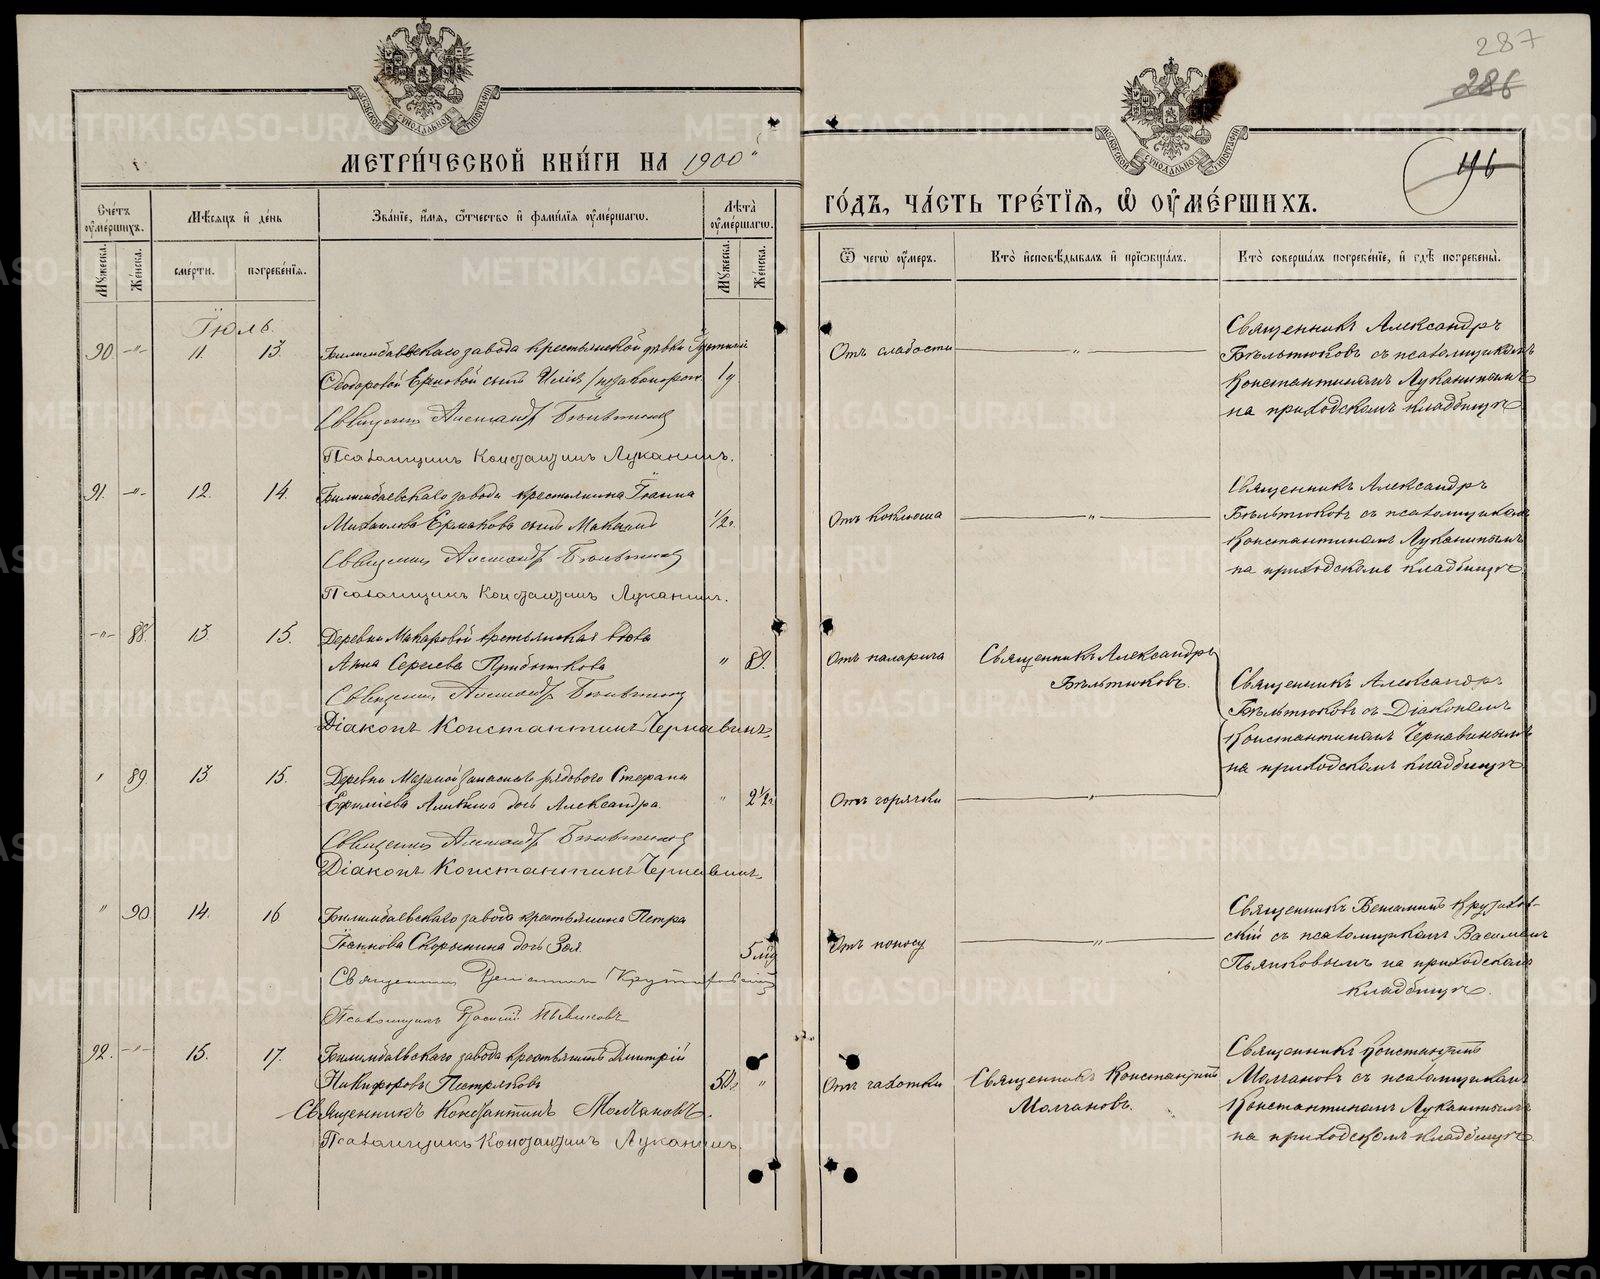 287
286
196
МЕТРИ́ЧЕСКОЙ КНИ́ГИ НА 1900
ГО́ДЪ, ЧА́СТЬ ТРЕ́ТЇѦ, Ѡ҆ ОУ҆МЕ́РШИХЪ.
Счетъ оу҆ме́ршихъ.
Мѣсяцъ и҆ де́нь
Зва́нїе, и҆́мѧ, ѻ҆́тчество и҆ фамилїѧ оу҆ме́ршагѡ.
Лѣта̀ оу҆ме́ршагѡ.
Мꙋжеска.
Же́нска.
сме́рти.
погребе́нїѧ.
Мꙋжеска.
Же́нска.
Ѿ чегѡ̀ оу҆́меръ.
Кто̀ и҆сповѣ́дывалъ и҆ прїѡбща́лъ.
Кто̀ соверша́лъ погребе́нїе, и҆ гдѣ̀ погребены̀.
Іюль.
90 -"- 11. 13. Билимбаевскаго завода крестьянской дѣвки
Ѳеодоровой сынъ Илія
Священникъ Александръ Бѣльтюковъ
Псаломщикъ Константинъ Луканинъ.
Отъ слабости
"
Священникъ Александръ
Бѣльтюковъ съ псаломщикомъ
Константиномъ Луканинымъ
на приходскомъ кладбищѣ
91. -"- 12. 14. Билимбаевскаго завода крестьянина Іоанна
Михаилова Ермакова сынъ 1/2 г.
Священникъ Александръ Бѣльтюковъ
Псаломщикъ Константинъ Луканинъ.
Отъ коклюша
"
Священникъ Александръ
Бѣльтюковъ съ псаломщикомъ
Константиномъ Луканинымъ
на приходскомъ кладбищѣ
-"- 88. 13 15. Деревни Макаровой крестьянская вдова
Анна Сергѣева Прибыткова " 89.
Священникъ Александръ Бѣльтюковъ
Діаконъ Константинъ Чернавинъ
Отъ паралича
Священникъ Александръ
Бѣльтюковъ.
Священникъ Александръ
Бѣльтюковъ съ Діакономъ
Константиномъ Чернавинымъ
на приходскомъ кладбищѣ
" 89. 13 15. Деревни запаснаго рядового Стефана
дочь Александра. " 2 1/2 г.
Священникъ Александръ Бѣльтюковъ
Діаконъ Константинъ Чернавинъ
Отъ горячки
"
" 90. 14. 16 Билимбаевскаго завода крестьянина Петра
Іоаннова Скорынина дочь Зоя. 5 м.
Священникъ
Псаломщикъ Василій Пьянковъ
Отъ поносу
"
Священникъ
скій съ псаломщикомъ Василіемъ
Пьянковымъ на приходскомъ
кладбищѣ.
92. -"- 15. 17. Билимбаевскаго завода крестьянинъ Димитрій
Никифоровъ Пестряковъ "
Священникъ Константинъ Молчановъ.
Псаломщикъ Константинъ Луканинъ.
Отъ чахотки
Священникъ Константинъ
Молчановъ.
Священникъ Константинъ
Молчановъ съ псаломщикомъ
Константиномъ Луканинымъ
на приходскомъ кладбищѣ.
METRIKI.GASO-URAL.RU